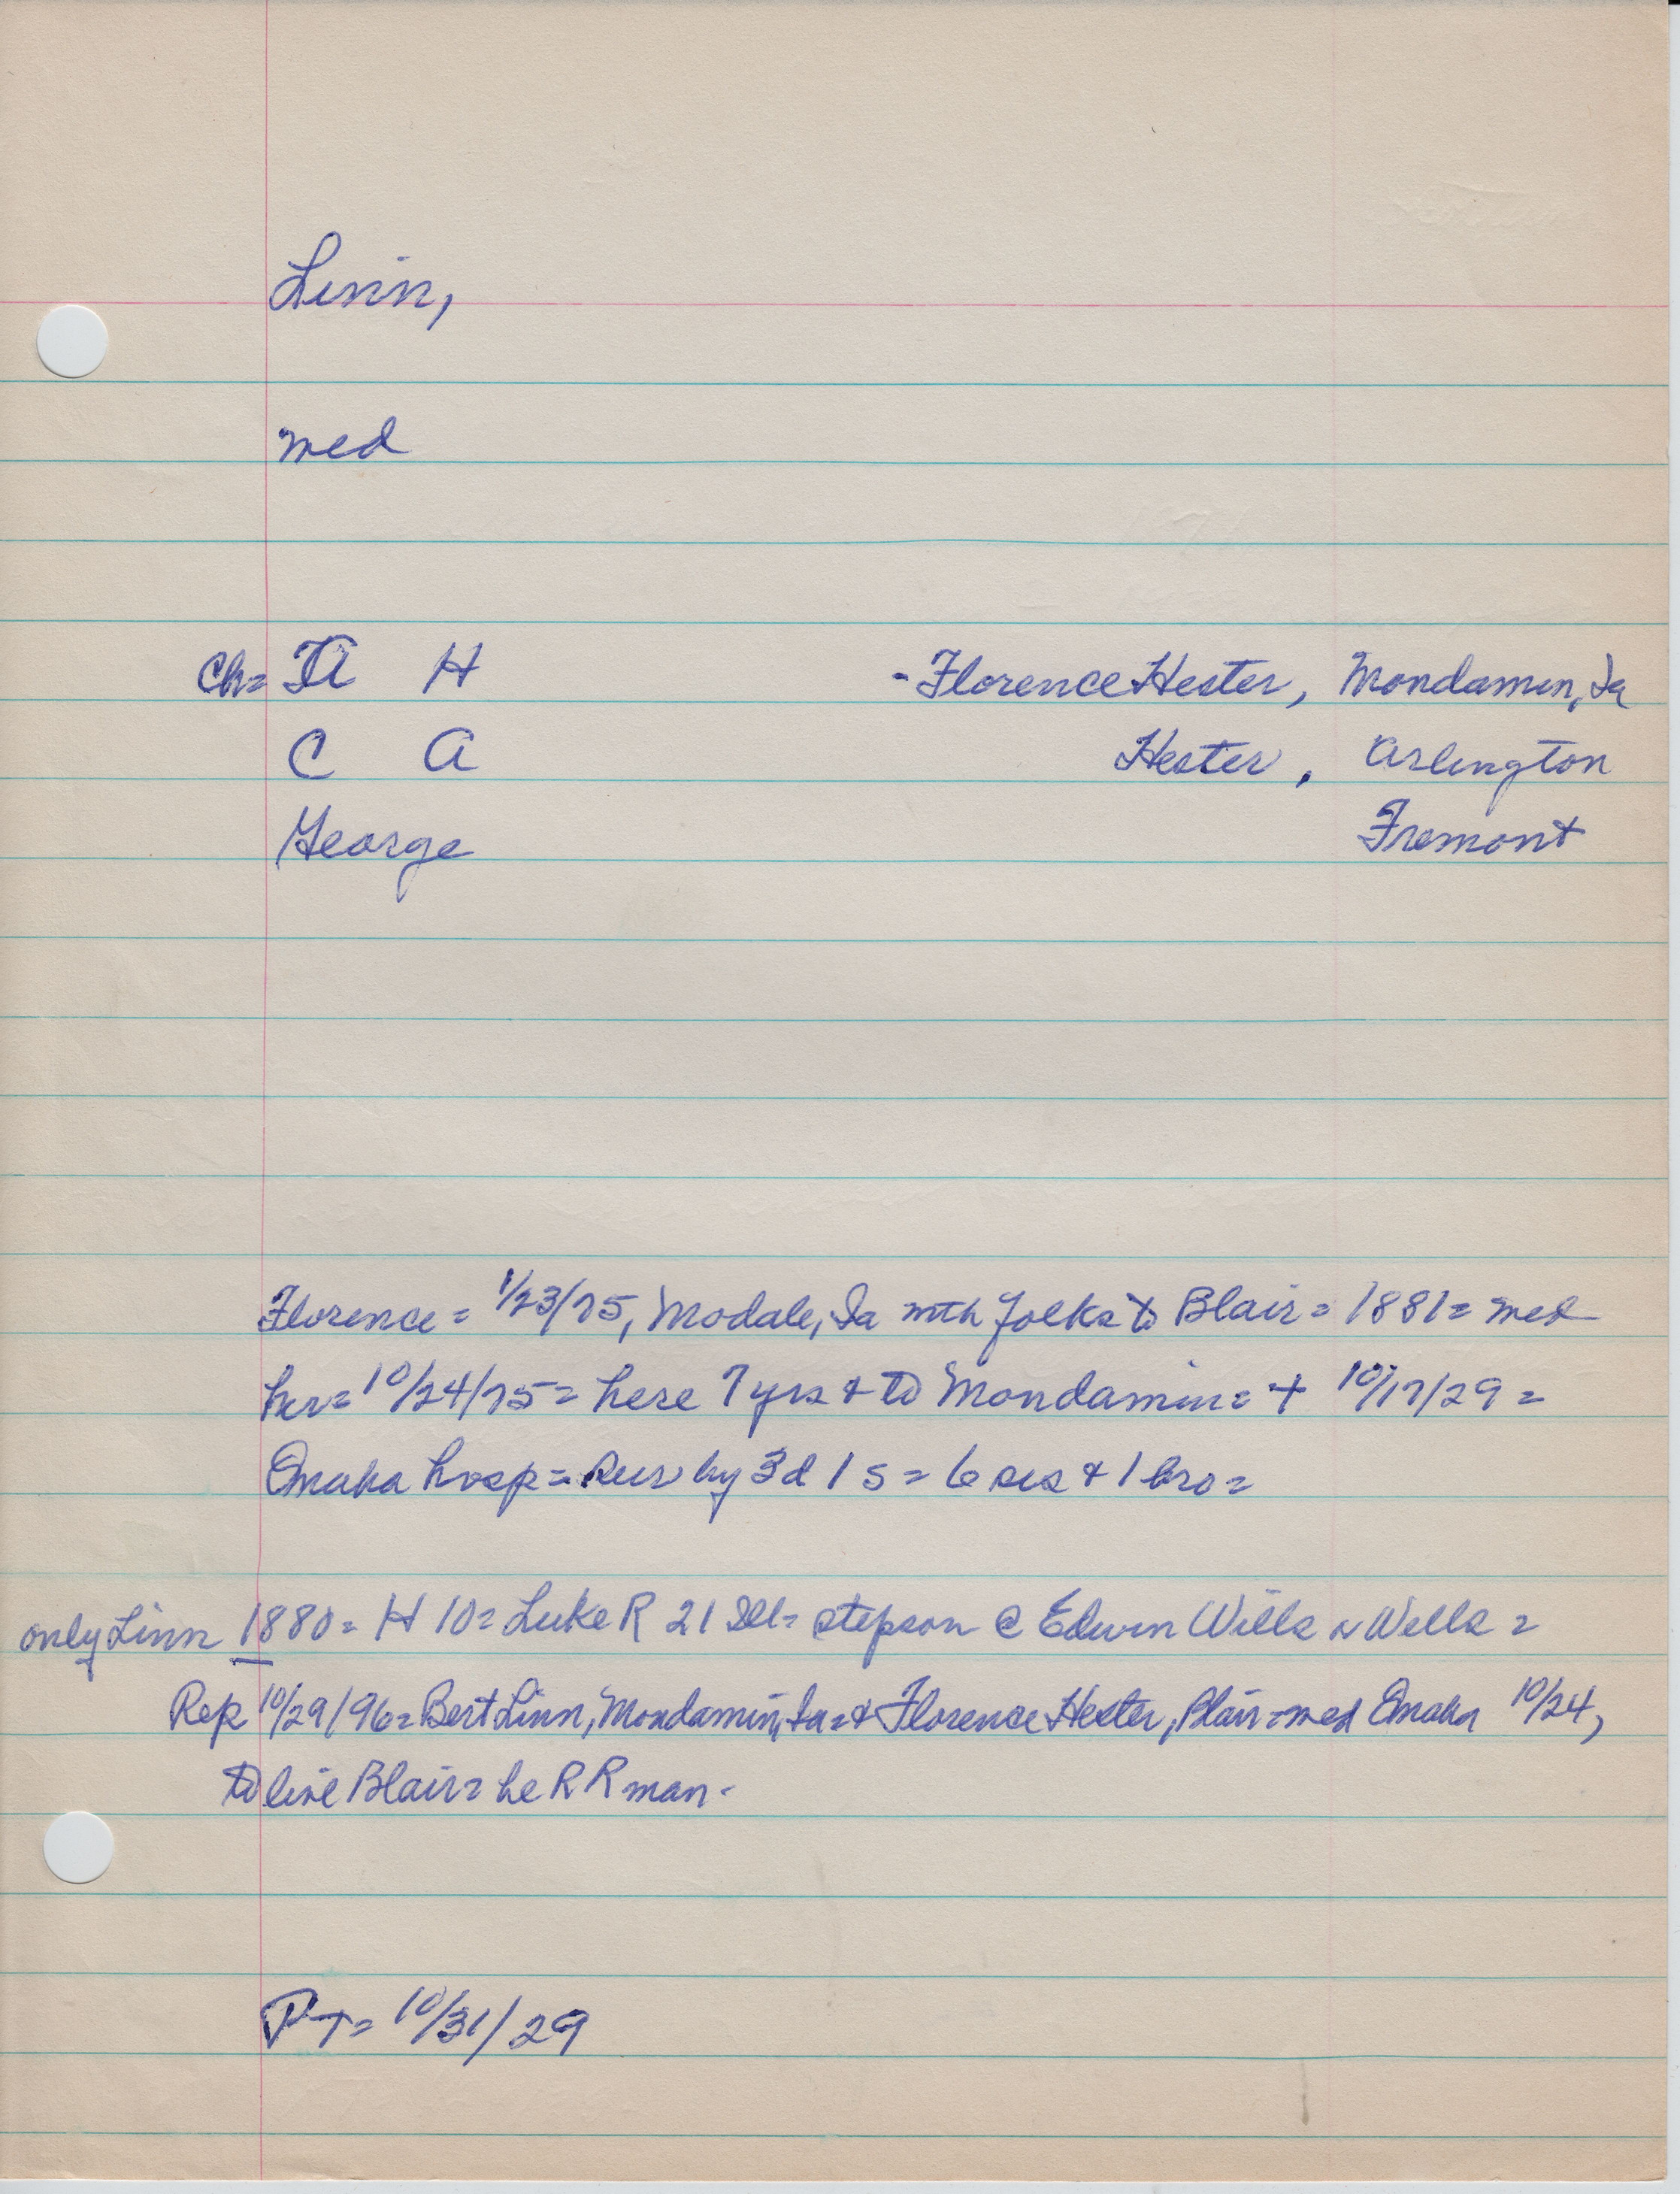 Linn,
med
Ch= TA H - Florence Hester, Mondamin, Ia
C A Hester, Arlington
George Fremont
Florence = 1/23/75, Modale, Ia with folks to Blair = 1881 = med
her = 10/24/75 = here 7 yrs & to Mondamin = + 10/17/29 =
Omaha hosp = Sur by 3 d 1 s = 6 sis & 1 bro =
only Linn 1880 = H 10 = Luke R 21 Ill = stepson @ Edwin Wills Wells =
Rep 10/29/96 = Bert Linn, Mondamin, Ia = & Florence Hester, Blair = med Omaha 10/24,
to live Blair = he R R man -
PT = 10/31/29